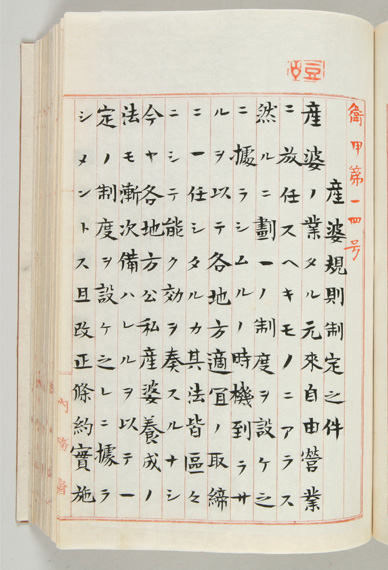 衛甲第一四号
産婆規則制定之件
産婆ノ業タル元來自由營業
ニ放任スヘキモノニアラス
然ルニ劃一ノ制度ヲ設ケ之
ニ據ラシムルノ時機到ラサ
ルヲ以テ各地方適宜ノ取締
ニ一任シタルカ其法皆區々
ニシテ能ク効ヲ奏スルナシ
今ヤ各地方公私産婆養成ノ
法モ漸次備ハレルヲ以テ一
定ノ制度ヲ設ケ之レニ據ラ
シメントス且改正條約實施
内務省